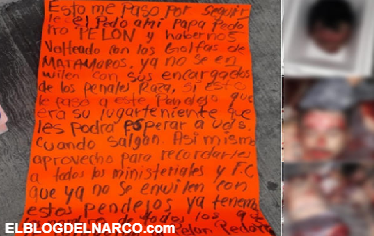 Esto me Paso Por seguir
les el Pedo a mi Papa Pedro
PELON y habernos
Volteado con las Golfas de
MATAMOROS, ya no se en
milen con sus encargados
de los penales Raza, si esto
le paso a este Pendejo que
era su lugarteniente que
les Podra esperar a uds.
cuando salgan. Asi mismo
aprovecho para recordarles
a todos los ministeriales y F.C
que ya no se envilen con
estos pendejos ya tenemos
de todos los que
Pelon
ELBLOGDELNARCO.COM